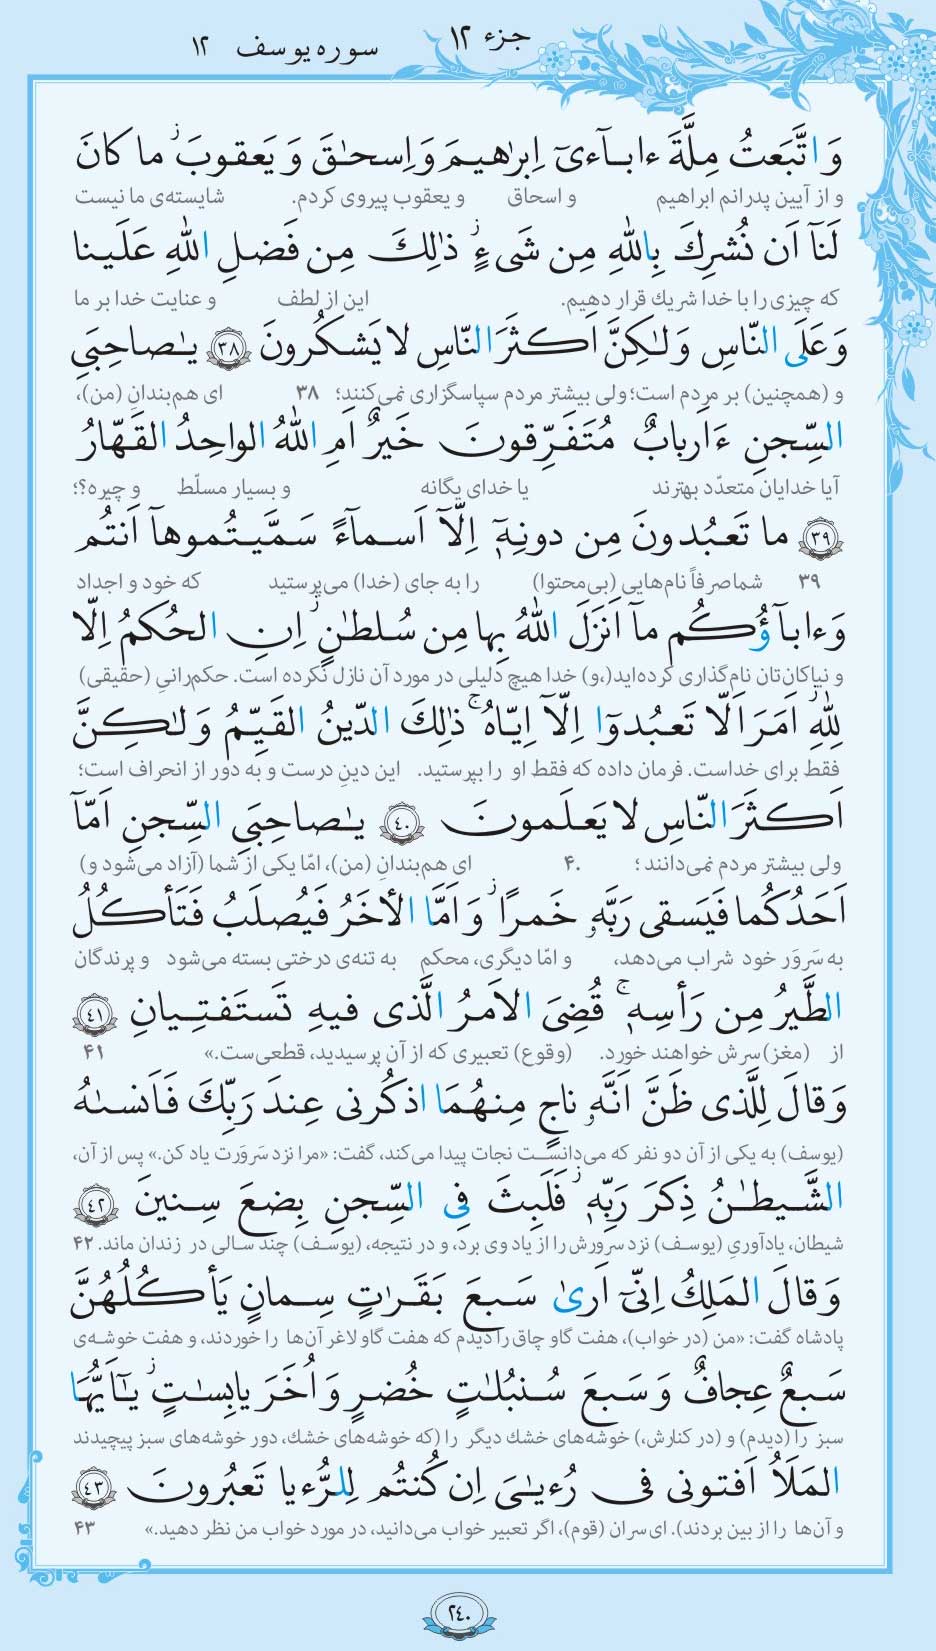 جزء ۱۲
سوره یوسف ۱۲
وَ اتَّبَعتُ مِلَّةَ ءابآءیٓ اِبرٰهیمَ وَ اِسحٰقَ وَ یَعقوبَ ۚ ما کانَ
و از آیین پدرانم ابراهیم و اسحاق و یعقوب پیروی کردم. شایسته‌ی ما نیست
لَنآ اَن نُشرِكَ بِاللهِ مِن شَیءٍ ۚ ذٰلِكَ مِن فَضلِ اللهِ عَلَینا
که چیزی را با خدا شریك قرار دهیم. این از لطف و عنایت خدا بر ما
وَ عَلَی النّاسِ وَلٰکِنَّ اَکثَرَ النّاسِ لا یَشکُرونَ ﴿۳۸﴾ یٰصاحِبَیِ
و (همچنین) بر مردم است؛ ولی بیشتر مردم سپاسگزاری نمی‌کنند؛ ۳۸ ای هم‌بندانِ (من)،
السِّجنِ ءَاَربابٌ مُتَفَرِّقونَ خَیرٌ اَمِ اللهُ الواحِدُ القَهّارُ
آیا خدایان متعدّد بهترند یا خدای یگانه و بسیار مسلّط و چیره؟؛
﴿۳۹﴾ ما تَعبُدونَ مِن دونِهٖٓ اِلّآ اَسمآءً سَمَّیتُموهآ اَنتُم
۳۹ شما صرفاً نام‌هایی (بی‌محتوا) را به جای (خدا) می‌پرستید که خود و اجداد
وَ ءابآؤُکُم مآ اَنزَلَ اللهُ بِها مِن سُلطٰنٍ ۚ اِنِ الحُکمُ اِلّا
و نیاکان‌تان نام‌گذاری کرده‌اید(،و) خدا هیچ دلیلی در مورد آن نازل نکرده است. حکم‌رانیِ (حقیقی)
لِلّٰهِ ۚ اَمَرَ اَلّا تَعبُدوٓا اِلّآ اِیّاهُ ۚ ذٰلِكَ الدّینُ القَیِّمُ وَلٰکِنَّ
فقط برای خداست. فرمان داده که فقط او را بپرستید. این دینِ درست و به دور از انحراف است؛
اَکثَرَ النّاسِ لا یَعلَمونَ ﴿۴۰﴾ یٰصاحِبَیِ السِّجنِ اَمّآ
ولی بیشتر مردم نمی‌دانند؛ ۴۰ ای هم‌بندانِ (من)، امّا یکی از شما (آزاد می‌شود و)
اَحَدُکُما فَیَسقی رَبَّهٗ خَمرًا ۚ وَ اَمَّا الأخَرُ فَیُصلَبُ فَتَأکُلُ
به سَروَر خود شراب می‌دهد، و امّا دیگری، محکم به تنه‌ی درختی بسته می‌شود و پرندگان
الطَّیرُ مِن رَأسِهٖ ۚ قُضِیَ الاَمرُ الَّذی فیهِ تَستَفتِیانِ ﴿۴۱﴾
از (مغز) سرش خواهند خورد. (وقوع) تعبیری که از آن پرسیدید، قطعی‌ست.» ۴۱
وَ قالَ لِلَّذی ظَنَّ اَنَّهٗ ناجٍ مِنهُمَا اذکُرنی عِندَ رَبِّكَ فَاَنسٰهُ
(یوسف) به یکی از آن دو نفر که می‌دانست نجات پیدا می‌کند، گفت: «مرا نزد سَروَرت یاد کن.» پس از آن،
الشَّیطٰنُ ذِکرَ رَبِّهٖ ۚ فَلَبِثَ فِی السِّجنِ بِضعَ سِنینَ ﴿۴۲﴾
شیطان، یادآوریِ (یوسف) نزد سرورش را از یاد وی برد، و در نتیجه، (یوسف) چند سالی در زندان ماند. ۴۲
وَ قالَ المَلِكُ اِنّیٓ اَرىٰ سَبعَ بَقَرٰتٍ سِمانٍ یَأکُلُهُنَّ
پادشاه گفت: «من (در خواب)، هفت گاو چاق را دیدم که هفت گاو لاغر آن‌ها را خوردند، و هفت خوشه‌ی
سَبعٌ عِجافٌ وَ سَبعَ سُنبُلٰتٍ خُضرٍ وَ اُخَرَ یابِسٰتٍ ۚ یٰٓاَیُّهَا
سبز را (دیدم) و (در کنارش،) خوشه‌های خشك دیگر را (که خوشه‌های خشك، دور خوشه‌های سبز پیچیدند
المَلَأُ اَفتونی فی رُءیٰیَ اِن کُنتُم لِلرُّءیا تَعبُرونَ ﴿۴۳﴾
و آن‌ها را از بین بردند). ای سران (قوم)، اگر تعبیر خواب می‌دانید، در مورد خواب من نظر دهید.» ۴۳
۲۴۰